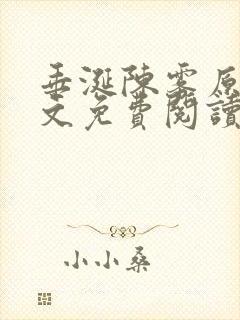 垂涎陳雾原
文免費閱讀
小小桑